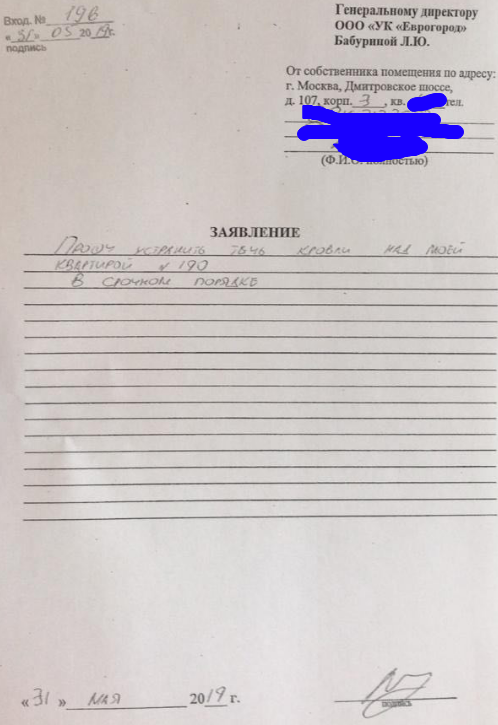 Вход. № 196
«31» 05 2019г.
подпись
Генеральному директору
ООО «УК «Еврогород»
Бабуриной Л.Ю.
От собственника помещения по адресу:
г. Москва, Дмитровское шоссе,
д. 107, корп. 3, кв. тел.
(Ф.И.О. полностью)
ЗАЯВЛЕНИЕ
Прошу устранить течь кровли над моей
квартирой N 190
В срочном порядке
«31» мая 2019 г.
подпись